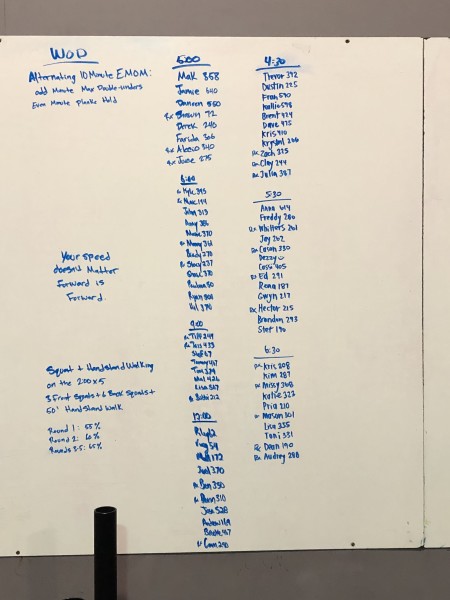 WOD
Alternating 10 Minute EMOM:
odd Minute Max Double-unders
Even Minute Plank Hold
Your speed
doesn't Matter
Forward is
Forward.
Squat + Handstand Walking
on the 2:00 x 5
3 Front Squats + 6 Back Squats +
50' Handstand Walk
Round 1: 55%
Round 2: 60%
Rounds 3-5: 65%
5:00
Mak 358
Jamie 640
Damon 550
Shawn 72
Derek 240
Farida 306
Alecio 340
June 275
8:00
Kyle 395
Marc 144
John 313
370
Manny 316
Brady 370
Stacy 237
370
Ryan
Val 370
9:00
Tiff 249
Tass 433
Steff 67
Tammy 417
Tom 374
Mel 426
Lisa 367
Bobbi 212
12:00
54
172
Joel 370
Ben 350
310
Jose 528
Andrew 169
467
Conn 240
4:30
Trevor 392
Dustin 225
Fran 590
Kallie 598
Brent 424
Dave 475
Kris 410
Krystal 266
Rx Zach 225
Rx Clay 244
Rx Julia 387
5:30
Anna 614
Freddy 280
Rx Whitters 261
Jay 262
Rx Cason 330
Dezzy
Cassi 405
Rx Ed 291
Rena 187
Gwyn 217
Rx Hector 215
Brandon 293
Stef 190
6:30
Rx Kris 208
Kim 287
Rx Missy 368
Katie 322
Pria 210
Rx Mason 301
Lisa 335
Toni 331
Rx Dean 190
Rx Audrey 288